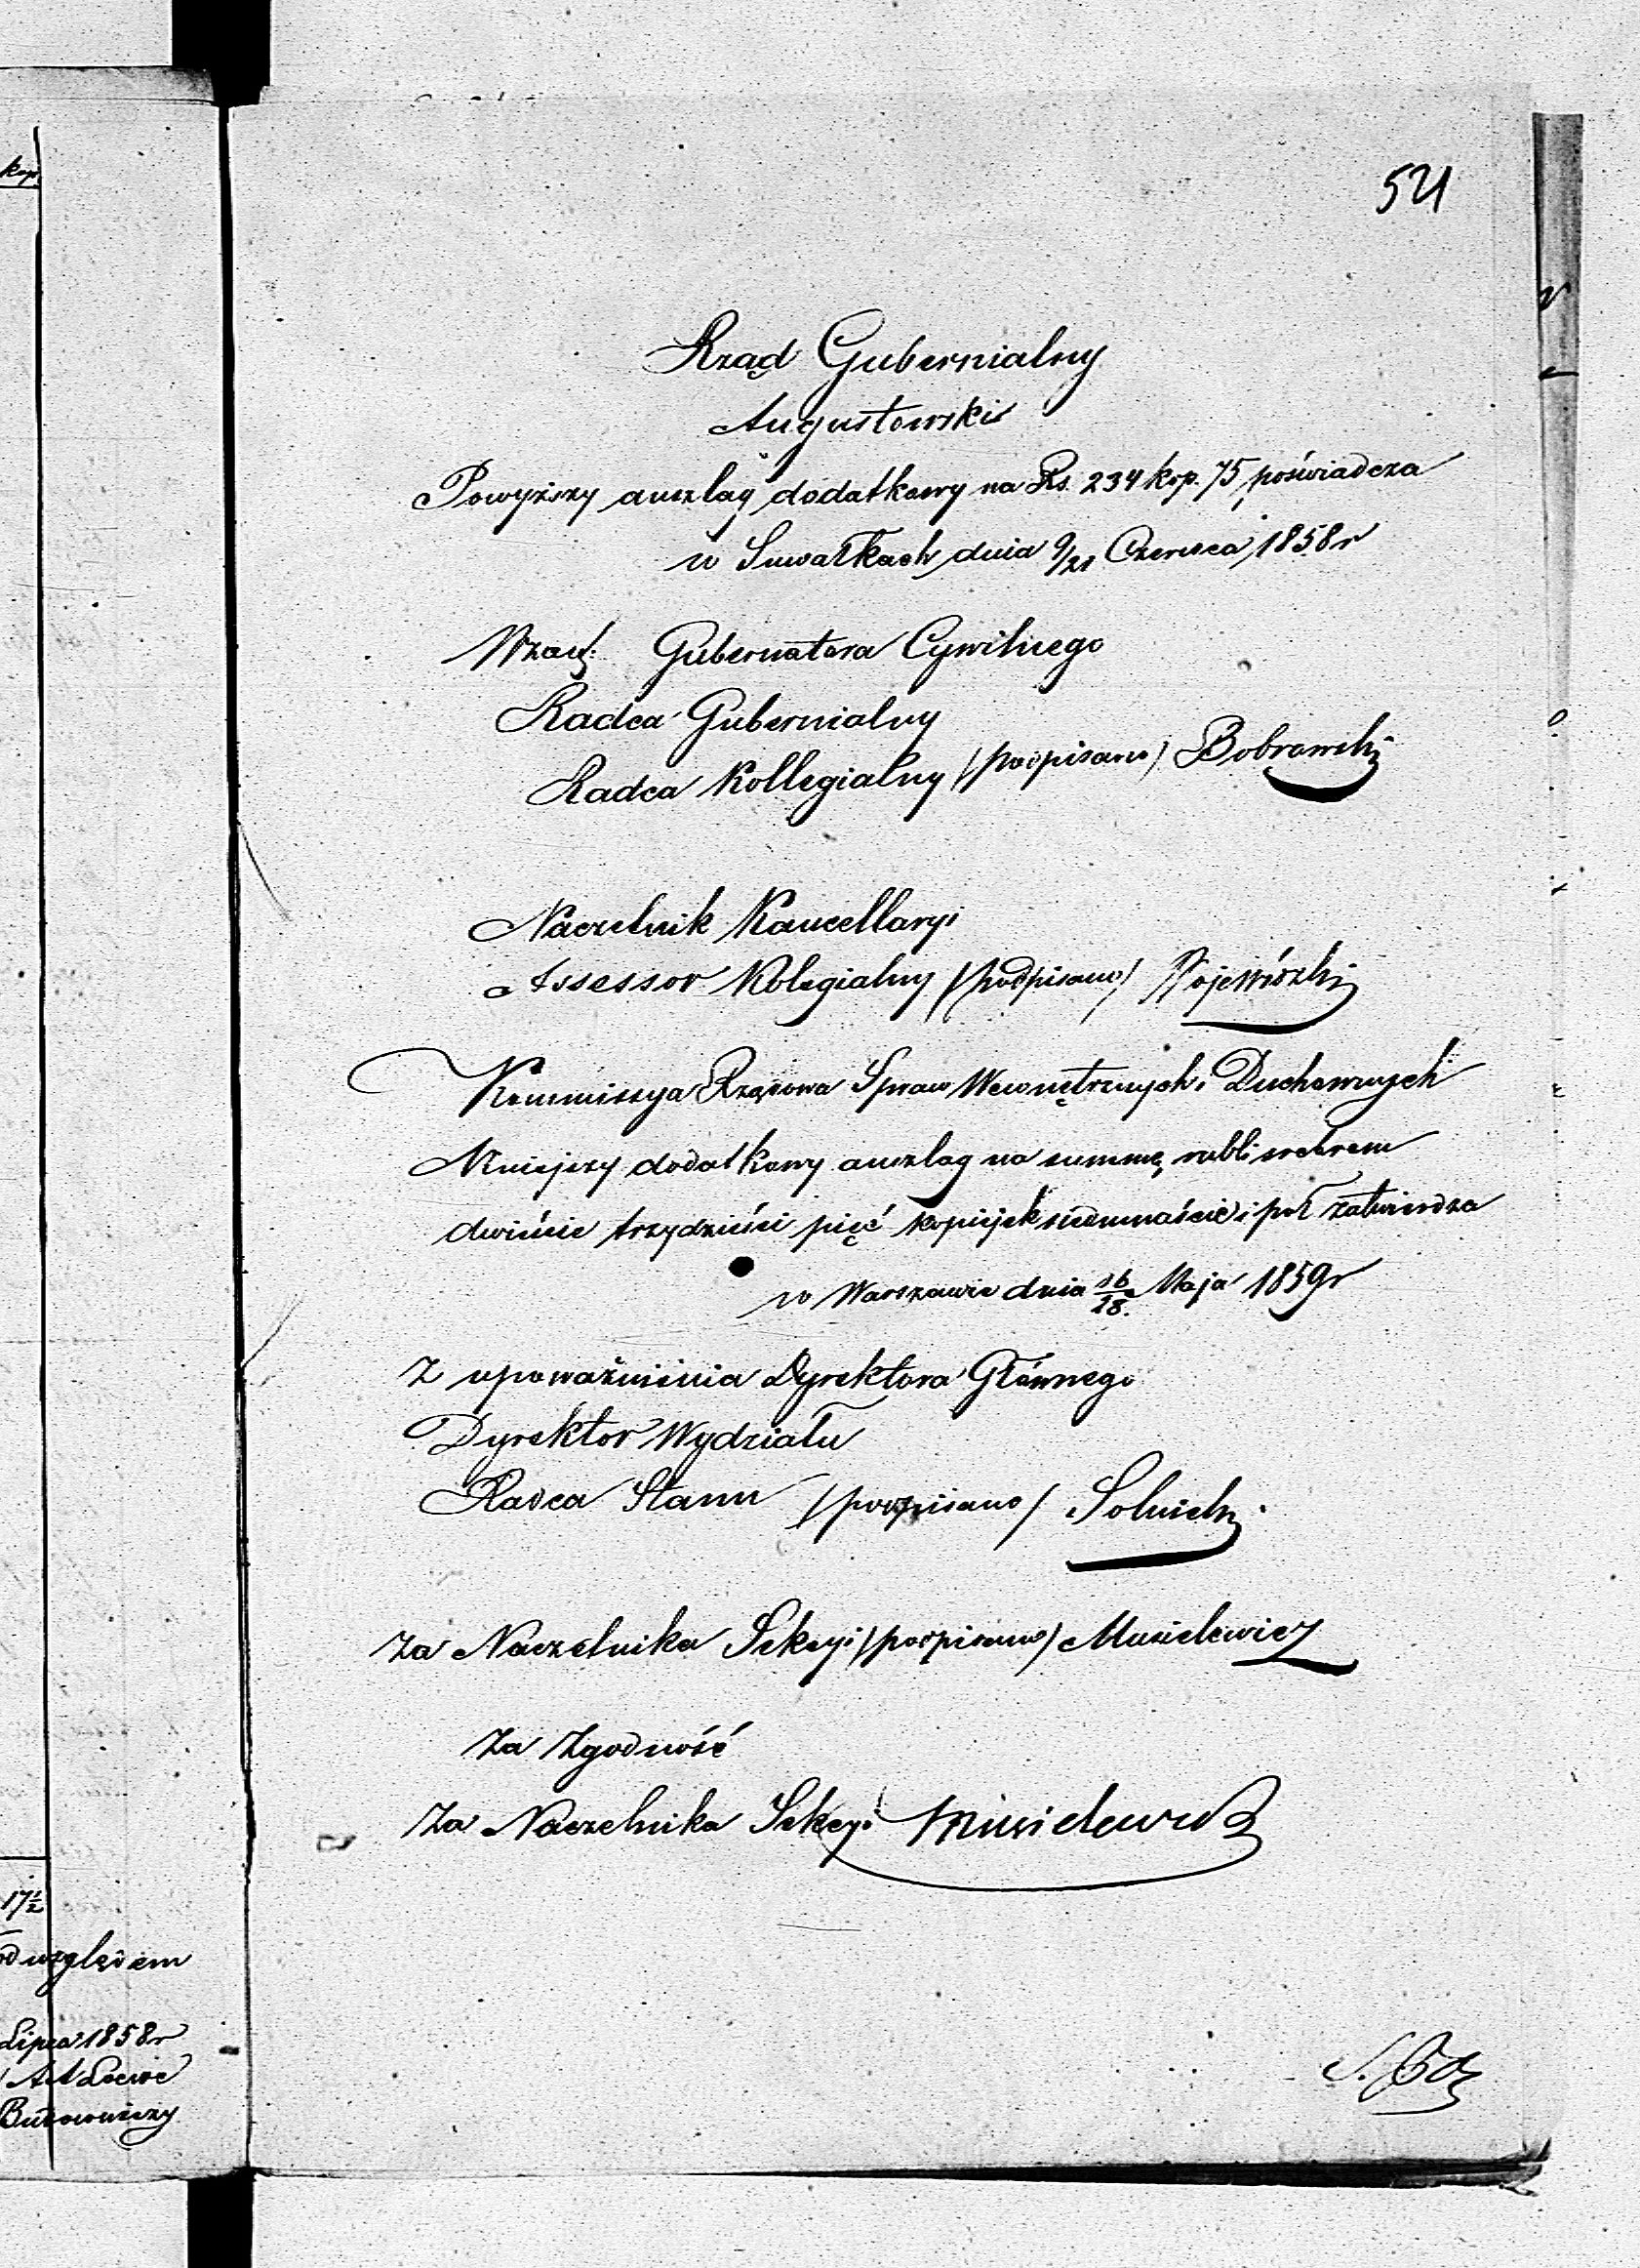 kop.
17½
pod względem
Lipca 1858r
Budowniczy
521
Rząd Gubernialny
Augustowski
Powyższy anszlag dodatkowy na Rs. 234 kop. 75 poświadcza
w Suwałkach dnia 9/21 Czerwca 1858r
Gubernatora Cywilnego
Radca Gubernialny
Radca Kollegialny /podpisano/ Bobrowski
Naczelnik Kancellaryi
Assessor Kolegialny /podpisano/ Wojewódzki
Kommissya Rządowa Spraw Wewnętrznych i Duchownych
Niniejszy dodatkowy anszlag na summę rubli srebrem
dwieście trzydzieści pięć kopiejek siedmnaście i pół zatwierdza
w Warszawie dnia 16/28. Maja 1859r
Z upoważnienia Dyrektora Głównego
Dyrektor Wydziału
Radca Stanu /podpisano/
Za Naczelnika Sekcyi /podpisano/ Musielewicz
Za Zgodność
Za Naczelnika Sekcyi Musielewicz